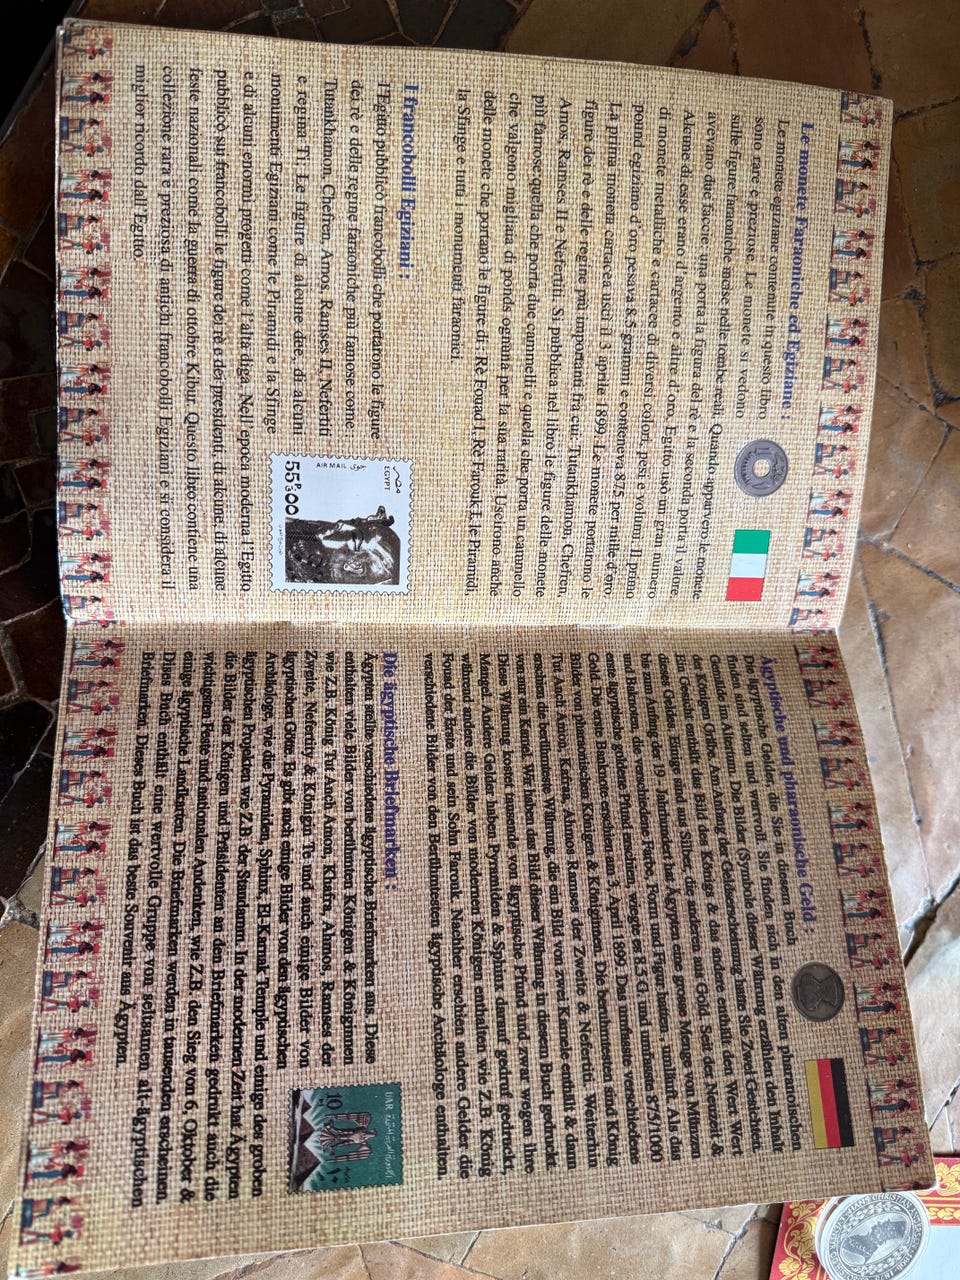 Le monete Faraoniche ed Egiziane :
Le monete egiziane contenute in questo libro
sono rare e preziose. Le monete si vedono
sulle figure faraoniche incise nelle tombe reali. Quando apparvero le monete.
avevano due faccie; una porta la figura del rè e la seconda porta il valore.
Alcune di esse erano d'argento e altre d'oro. Egitto usò un gran numero
di monete metalliche e cartacee di diversi colori, pesi e volumi. Il primo
pound egiziano d'oro pesava 8.5 grammi e conteneva 875 per mille d'oro.
La prima moneta cartacea uscì il 3 aprile 1899. Le monete portarono le
figure dei rè e delle regine più importanti fra cui: Tutankhamon, Chefren,
Amos, Ramses II e Nefertiti. Si pubblica nel libro le figure delle monete
più famose:quella che porta due cammelli e quella che porta un cammello
che valgono migliaia di ponds ognuna per la sua rarità. Uscirono anche
delle monete che portano le figure di : Rè Fouad I, Rè Farouk I, le Piramidi,
la Sfinge e tutti i monumenti faraonici.
I francobolli Egiziani :
l'Egitto pubblicò francobolli che portarono le figure
dei rè e delle regine faraoniche più famose come :
Tutankhamon, Chefren, Amos, Ramses II, Nefertiti
e regina Ti. Le figure di alcune dee, di alcuni
monumenti Egiziani come le Piramidi e la Sfinge
e di alcuni enormi progetti come l'alta diga. Nell'epoca moderna l'Egitto
pubblicò sui francobolli le figure dei rè e dei presidenti, di alcine, di alcune
feste nazionali come la guerra di ottobre Kibur. Questo libro contiene una
collezione rara e preziosa di antichi francobolli Egiziani e si considera il
miglior ricordo dall'Egitto.
مصر
EGYPT
جوى
AIR MAIL
55 P 00
Ägyptische und pharaonische Geld :
Die ägyptische Gelder, die Sie in diesem Buch
finden sind selten und wertvoll. Sie finden sich in den alten pharaonischen
Gemälde im Altertum. Die Bilder (Symbole dieser Währung erzählen den Inhalt
der Königen Gräbe. Am Anfang der Gelderscheinung hatte Sie Zwei Gesichten.
Ein Gesicht enthält das Bild des Königs & das andere enthält den Wert. Wert
dieses Geldes. Einige sind aus Silber, die anderen aus Gold. Seit der Neuzeit &
bis zum Anfang der 19. Jahrhundert hat Ägypten eine grosse Menge von Münzen
und Baknoten, die verschiedene Farbe, Form und Figur hätten , umläuft. Als das
erste ägyptische goldene Pfund erschien, wiegte es 8.5 G, und umfasste 875/1000
Gold. Die erste Banknote erschien am 3. April 1899. Das umfasste verschiedene
Bilder von pharaonischen Königen & Königinnen. Die berühmtesten sind König
Tut Anch Amon, Kafraa, Ahmos Ramses der Zweite & Nefertiti. Weiterhin
erschien die berühmteste Währung, die ein Bild von zwei Kamele enthält & dann
von nur ein Kamel. Wir haben das Bild dieser Währung in diesem Buch gedruckt.
Diese Währung kostet tausende von ägyptische Pfund und zwar wegen ihre
Mangel. Andere Gelder haben Pyramiden & Sphinx darauf gedruf gedruckt,
während andere die Bilder von modernen Königen enthalten wie Z.B. König
Fouad der Erste und sein Sohn Farouk. Nachher erschien andere Gelder die
verschiedene Bilder von den Berühmtesten ägyptische Archäologe enthalten.
Die ägyptische Briefmarken :
Ägypten stellte verschiedene ägyptische Briefmarken aus. Diese
enthalten viele Bilder von berühmten Königen & Königinnen
wie Z.B. König Tut Anch Amon, Khafra, Ahmos, Ramses der
Zweite, Nefertity & Königin Te und auch einige Bilder von
ägyptischen Götte. Es gibt auch einige Bilder von den ägyptischen
Archäologe, wie die Pyramiden, Sphinx, El-Karnak Temple und einige des groben
ägyptischen Projekten wie Z.B der Staudamm. In der modernen Zeit hat Ägypten
die Bilder der Königen und Präsidenten an den Briefmarken gedrukt auch die
wichtigsten Feste und nationalen Andenken, wie Z.B. den Sieg von 6. Oktober &
einige ägyptische Landkarten. Die Briefmarken werden in tausenden erscheinen.
Dieses Buch enthält eine wertvolle Gruppe von seltsamen alt-ägyptischen
Briefmarken. Dieses Buch ist das beste Souvenir aus Ägypten.
UAR
10